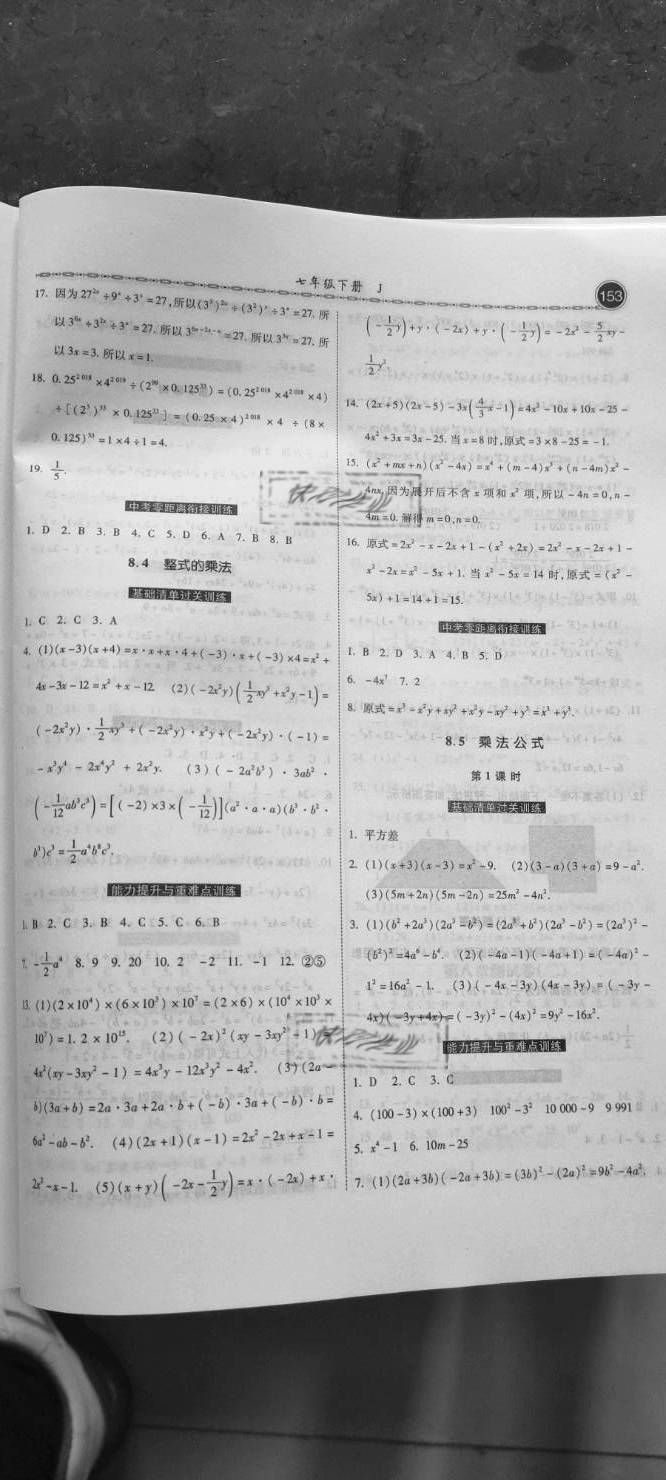 七年级下册 J
153
17. 因为 27²ˣ÷9ˣ÷3ˣ=27,所以(3³)²ˣ÷(3²)ˣ÷3ˣ=27. 所
以 3⁶ˣ÷3²ˣ÷3ˣ=27. 所以 3⁶ˣ⁻²ˣ⁻ˣ=27. 所以 3³ˣ=27. 所
以 3x=3. 所以 x=1.
18. 0.25²⁰¹⁸×4²⁰¹⁹÷(2⁹⁹×0.125³³)=(0.25²⁰¹⁸×4²⁰¹⁸×4)
÷[(2³)³³×0.125³³]=(0.25×4)²⁰¹⁸×4÷(8×
0.125)³³=1×4÷1=4.
19. 1/5.
中考零距离衔接训练
1. D 2. B 3. B 4. C 5. D 6. A 7. B 8. B
8.4 整式的乘法
基础清单过关训练
1. C 2. C 3. A
4. (1)(x-3)(x+4)=x·x+x·4+(-3)·x+(-3)×4=x²+
4x-3x-12=x²+x-12. (2)(-2x²y)(1/2xy³+x²y-1)=
(-2x²y)·1/2xy³+(-2x²y)·x²y+(-2x²y)·(-1)=
-x³y⁴-2x⁴y²+2x²y. (3)(-2a²b³)·3ab²·
(-1/12ab³c³)=[(-2)×3×(-1/12)](a²·a·a)(b³·b²·
b³)c³=1/2a⁴b⁸c³.
能力提升与重难点训练
1. B 2. C 3. B 4. C 5. C 6. B
7. -1/2a⁴ 8. 9 9. 20 10. 2 -2 11. -1 12. ②⑤
13. (1)(2×10⁴)×(6×10³)×10⁷=(2×6)×(10⁴×10³×
10⁷)=1.2×10¹⁵. (2)(-2x)²(xy-3xy²-1)=
4x²(xy-3xy²-1)=4x³y-12x³y²-4x². (3)(2a-
b)(3a+b)=2a·3a+2a·b+(-b)·3a+(-b)·b=
6a²-ab-b². (4)(2x+1)(x-1)=2x²-2x+x-1=
2x²-x-1. (5)(x+y)(-2x-1/2y)=x·(-2x)+x·
(-1/2y)+y·(-2x)+y·(-1/2y)=-2x²-5/2xy-
1/2y².
14. (2x+5)(2x-5)-3x(4/3x-1)=4x²-10x+10x-25-
4x²+3x=3x-25. 当 x=8 时,原式=3×8-25=-1.
15. (x²+mx+n)(x²-4x)=x⁴+(m-4)x³+(n-4m)x²-
4nx,因为展开后不含 x 项和 x² 项,所以-4n=0,n-
4m=0. 解得 m=0,n=0.
16. 原式=2x²-x-2x+1-(x²+2x)=2x²-x-2x+1-
x²-2x=x²-5x+1. 当 x²-5x=14 时,原式=(x²-
5x)+1=14+1=15.
中考零距离衔接训练
1. B 2. D 3. A 4. B 5. D
6. -4x⁷ 7. 2
8. 原式=x³-x²y+xy²+x²y-xy²+y³=x³+y³.
8.5 乘法公式
第1课时
基础清单过关训练
1. 平方差
2. (1)(x+3)(x-3)=x²-9. (2)(3-a)(3+a)=9-a².
(3)(5m+2n)(5m-2n)=25m²-4n².
3. (1)(b²+2a³)(2a³-b²)=(2a³+b²)(2a³-b²)=(2a³)²-
(b²)²=4a⁶-b⁴. (2)(-4a-1)(-4a+1)=(-4a)²-
1²=16a²-1. (3)(-4x-3y)(4x-3y)=(-3y-
4x)(-3y+4x)=(-3y)²-(4x)²=9y²-16x².
能力提升与重难点训练
1. D 2. C 3. C
4. (100-3)×(100+3) 100²-3² 10 000-9 9 991
5. x⁴-1 6. 10m-25
7. (1)(2a+3b)(-2a+3b)=(3b)²-(2a)²=9b²-4a².